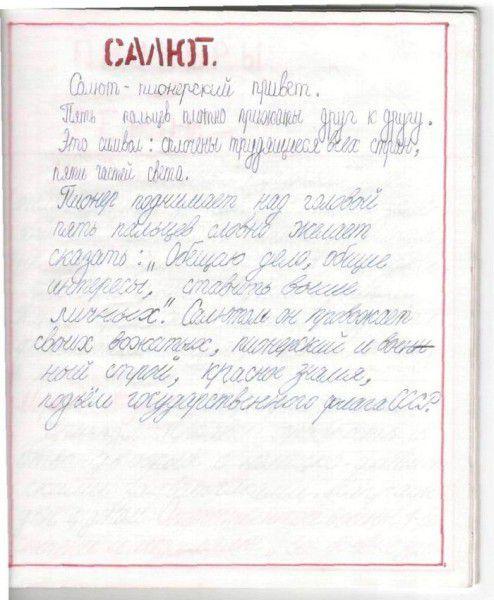 САЛЮТ.
Салют - пионерский привет.
Пять пальцев плотно прижаты друг к другу.
Это символ: сплочены трудящиеся всех стран,
пяти частей света.
Пионер поднимает над головой
пять пальцев словно желает
сказать: „Обещаю дела, общие
интересы, ставить выше
личных". Салютом он провожает
своих вожатых, пионерский и воен
ный строй, красное знамя,
подъём государственного флага СССР.